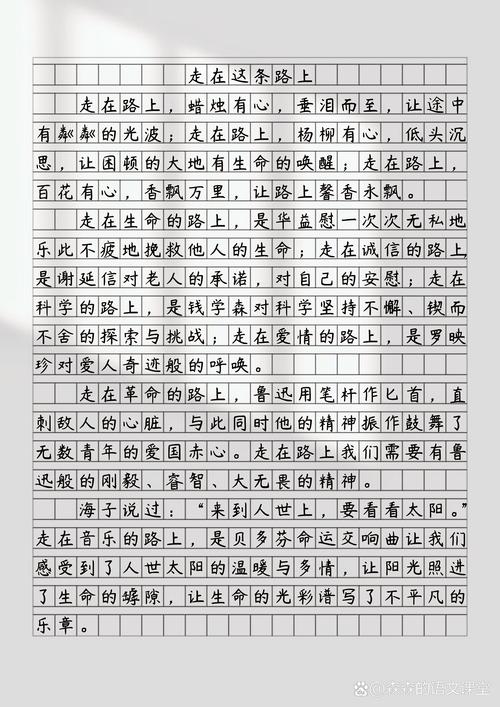 走在这条路上
走在路上，蜡烛有心，垂泪而至，让途中
有粼粼的光波；走在路上，杨柳有心，低头沉
思，让困顿的大地有生命的唤醒；走在路上，
百花有心，香飘万里，让路上馨香永飘。
走在生命的路上，是华益慰一次次无私地
乐此不疲地挽救他人的生命；走在诚信的路上，
是谢延信对老人的承诺，对自己的安慰；走在
科学的路上，是钱学森对科学坚持不懈、锲而
不舍的探索与挑战；走在爱情的路上，是罗映
珍对爱人奇迹般的呼唤。
走在革命的路上，鲁迅用笔杆作匕首，直
刺敌人的心脏，与此同时他的精神振作鼓舞了
无数青年的爱国赤心。走在路上我们需要有鲁
迅般的刚毅、睿智、大无畏的精神。
海子说过：“来到人世上，要看看太阳。”
走在音乐的路上，是贝多芬命运交响曲让我们
感受到了人世太阳的温暖与多情，让阳光照进
了生命的罅隙，让生命的光彩谱写了不平凡的
乐章。
森森的语文课堂